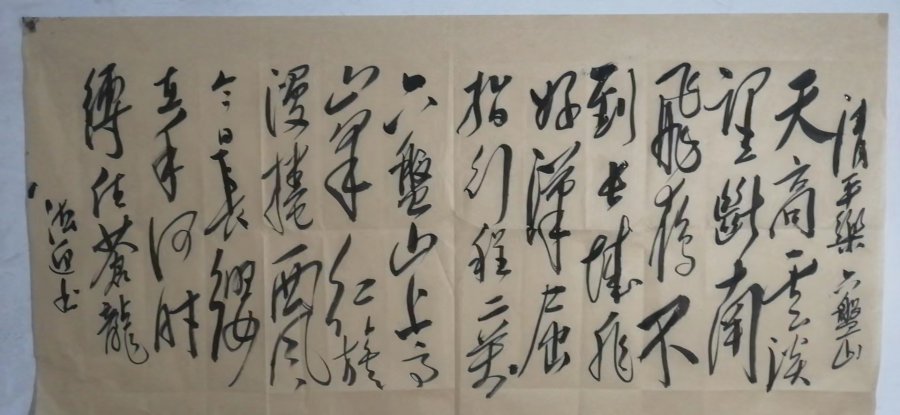 清平樂 六盤山
天高云淡
望斷南
飛雁不
到長城非
好漢屈
指行程二萬
六盤山上高
峯紅旗
漫捲西風
今日長纓
在手何時
縛住蒼龍
迎书